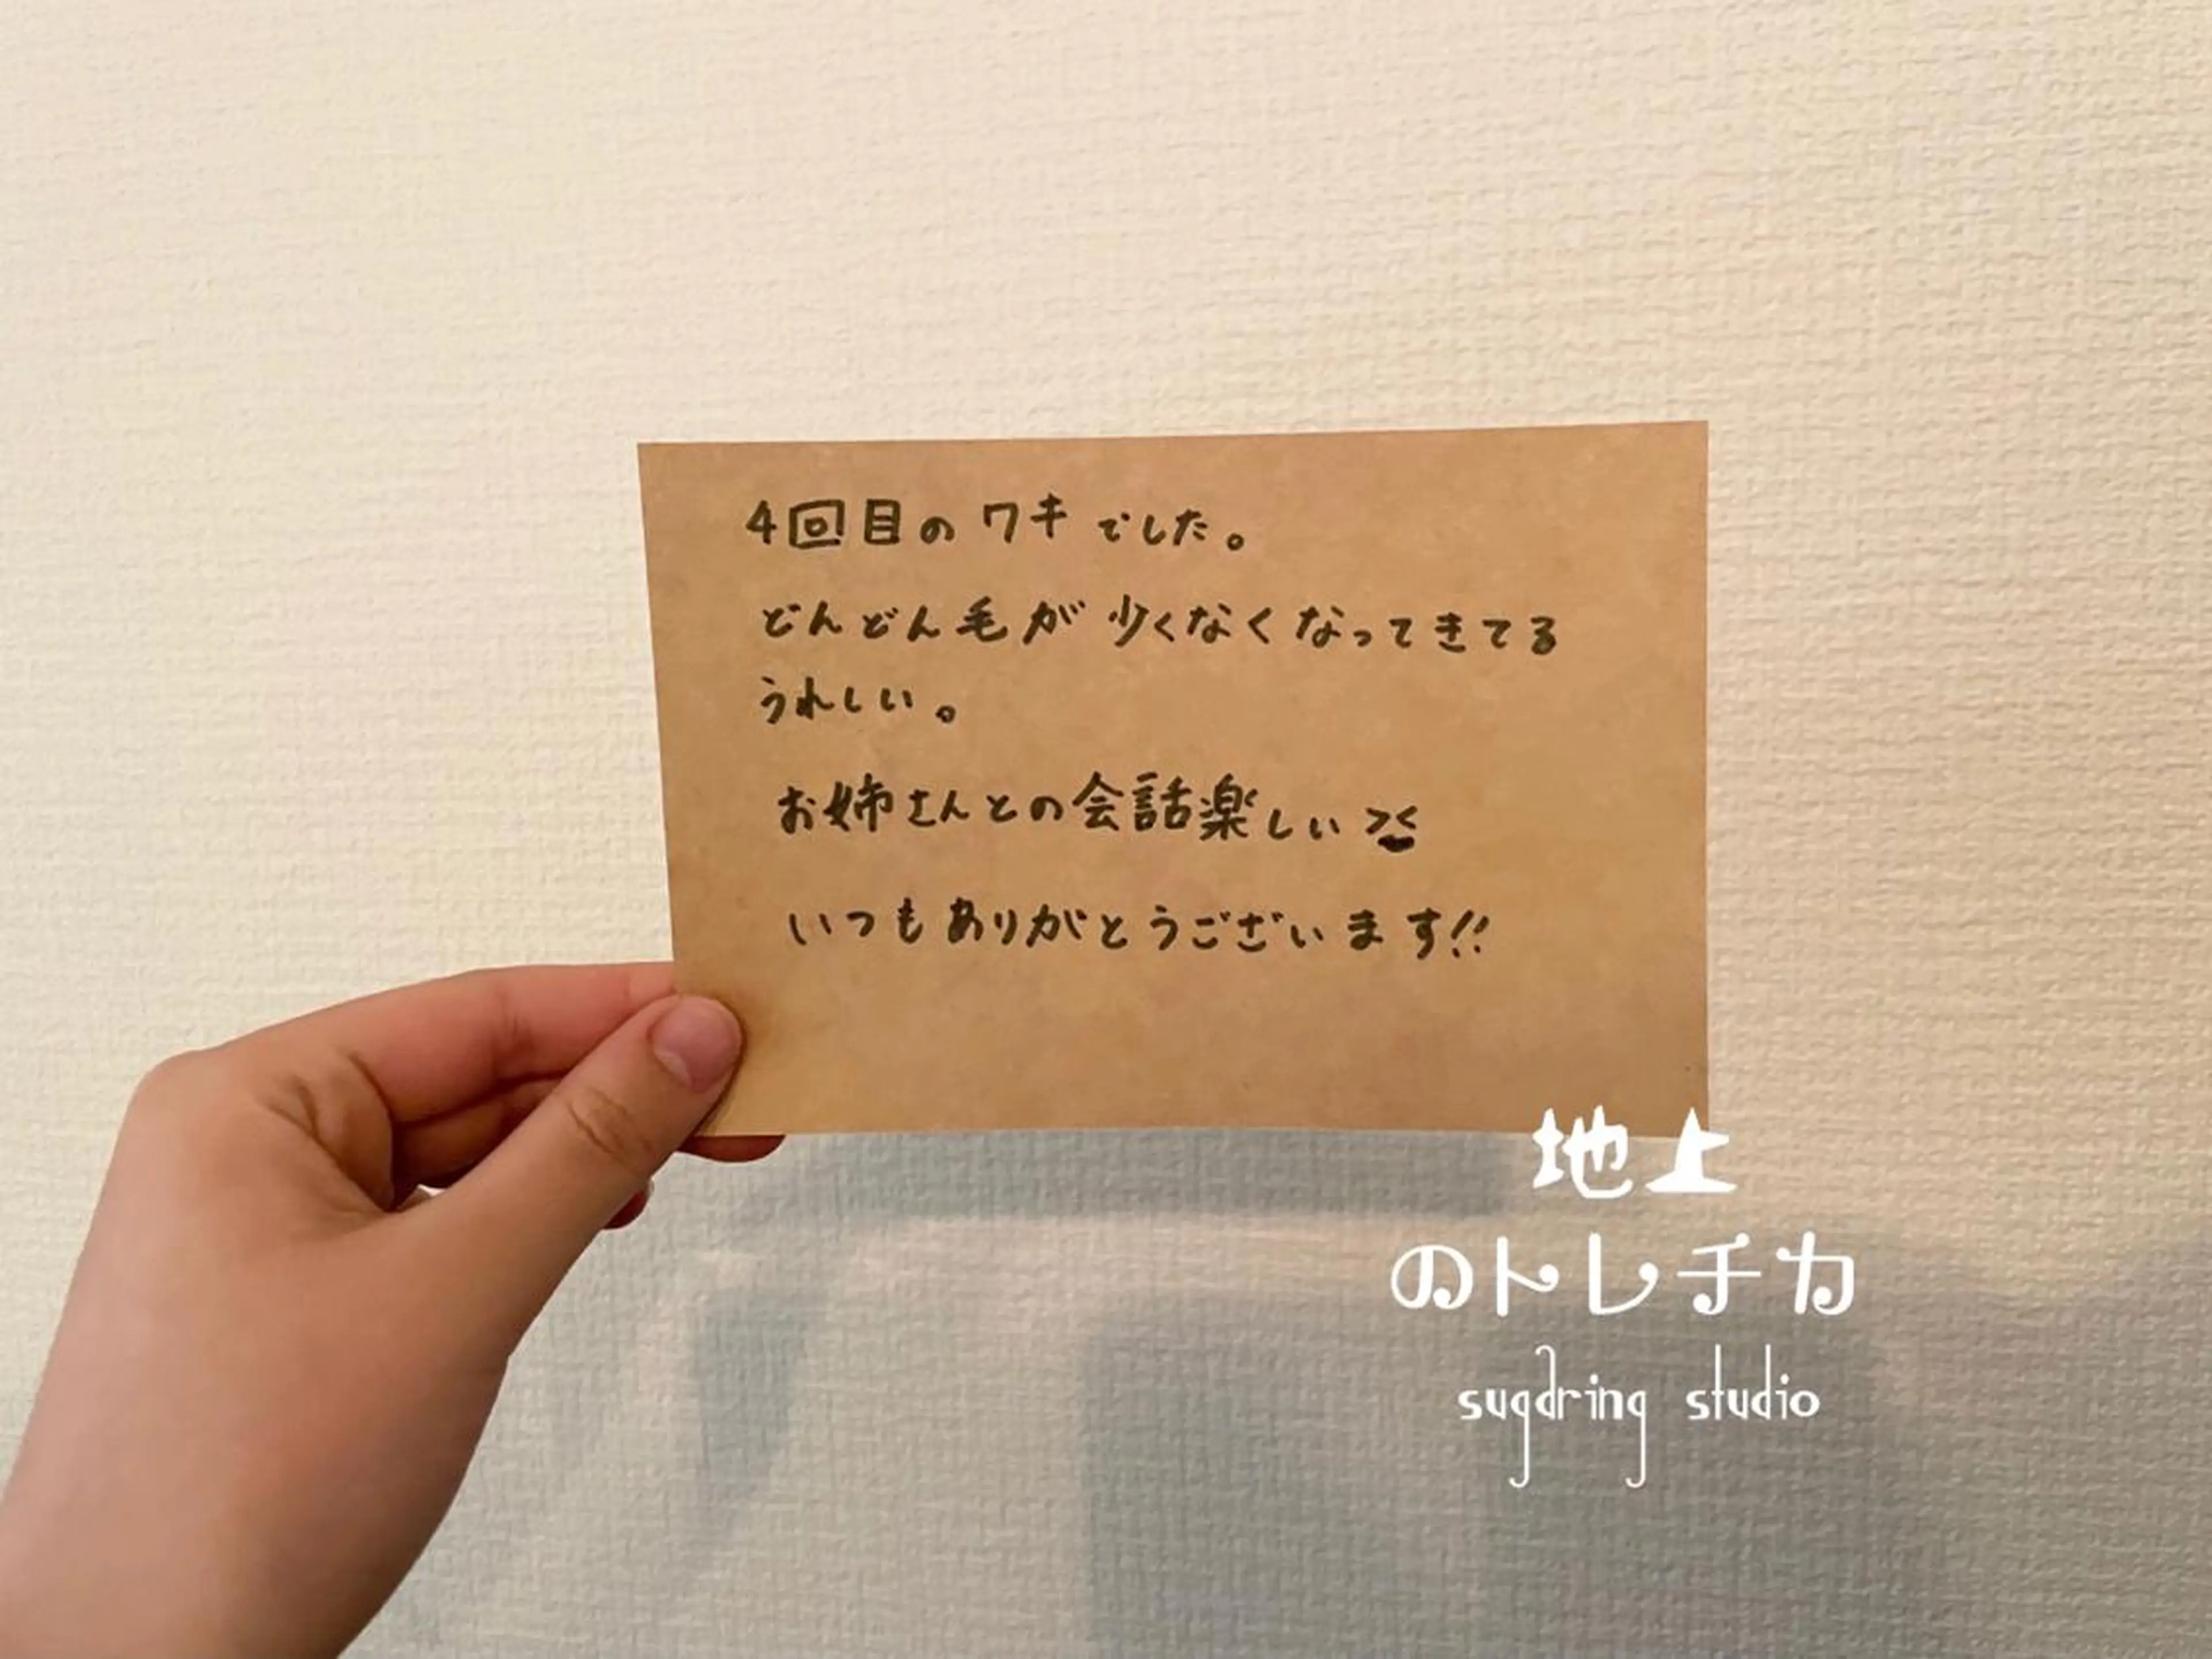 4回目のワキでした。
どんどん毛が少くなくなってきてる
うれしい。
お姉さんとの会話楽しい ><
いつもありがとうございます!!
地上
のトレチカ
sugaring studio